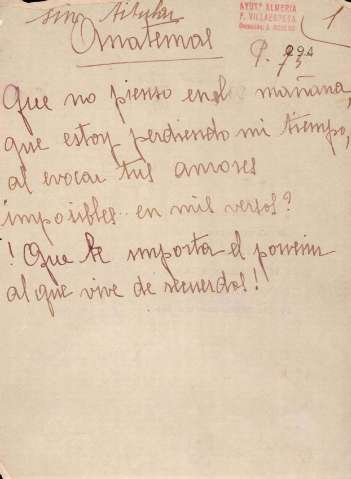 sin titular
Anatemas
AYUTº ALMERIA
F. VILLAESPESA
1
P. 294
73
Que no pienso en el mañana,
que estoy perdiendo mi tiempo,
al evocar tus amores
imposibles.. en mis versos?
! Que le importa el porvenir
al que vive de recuerdos!